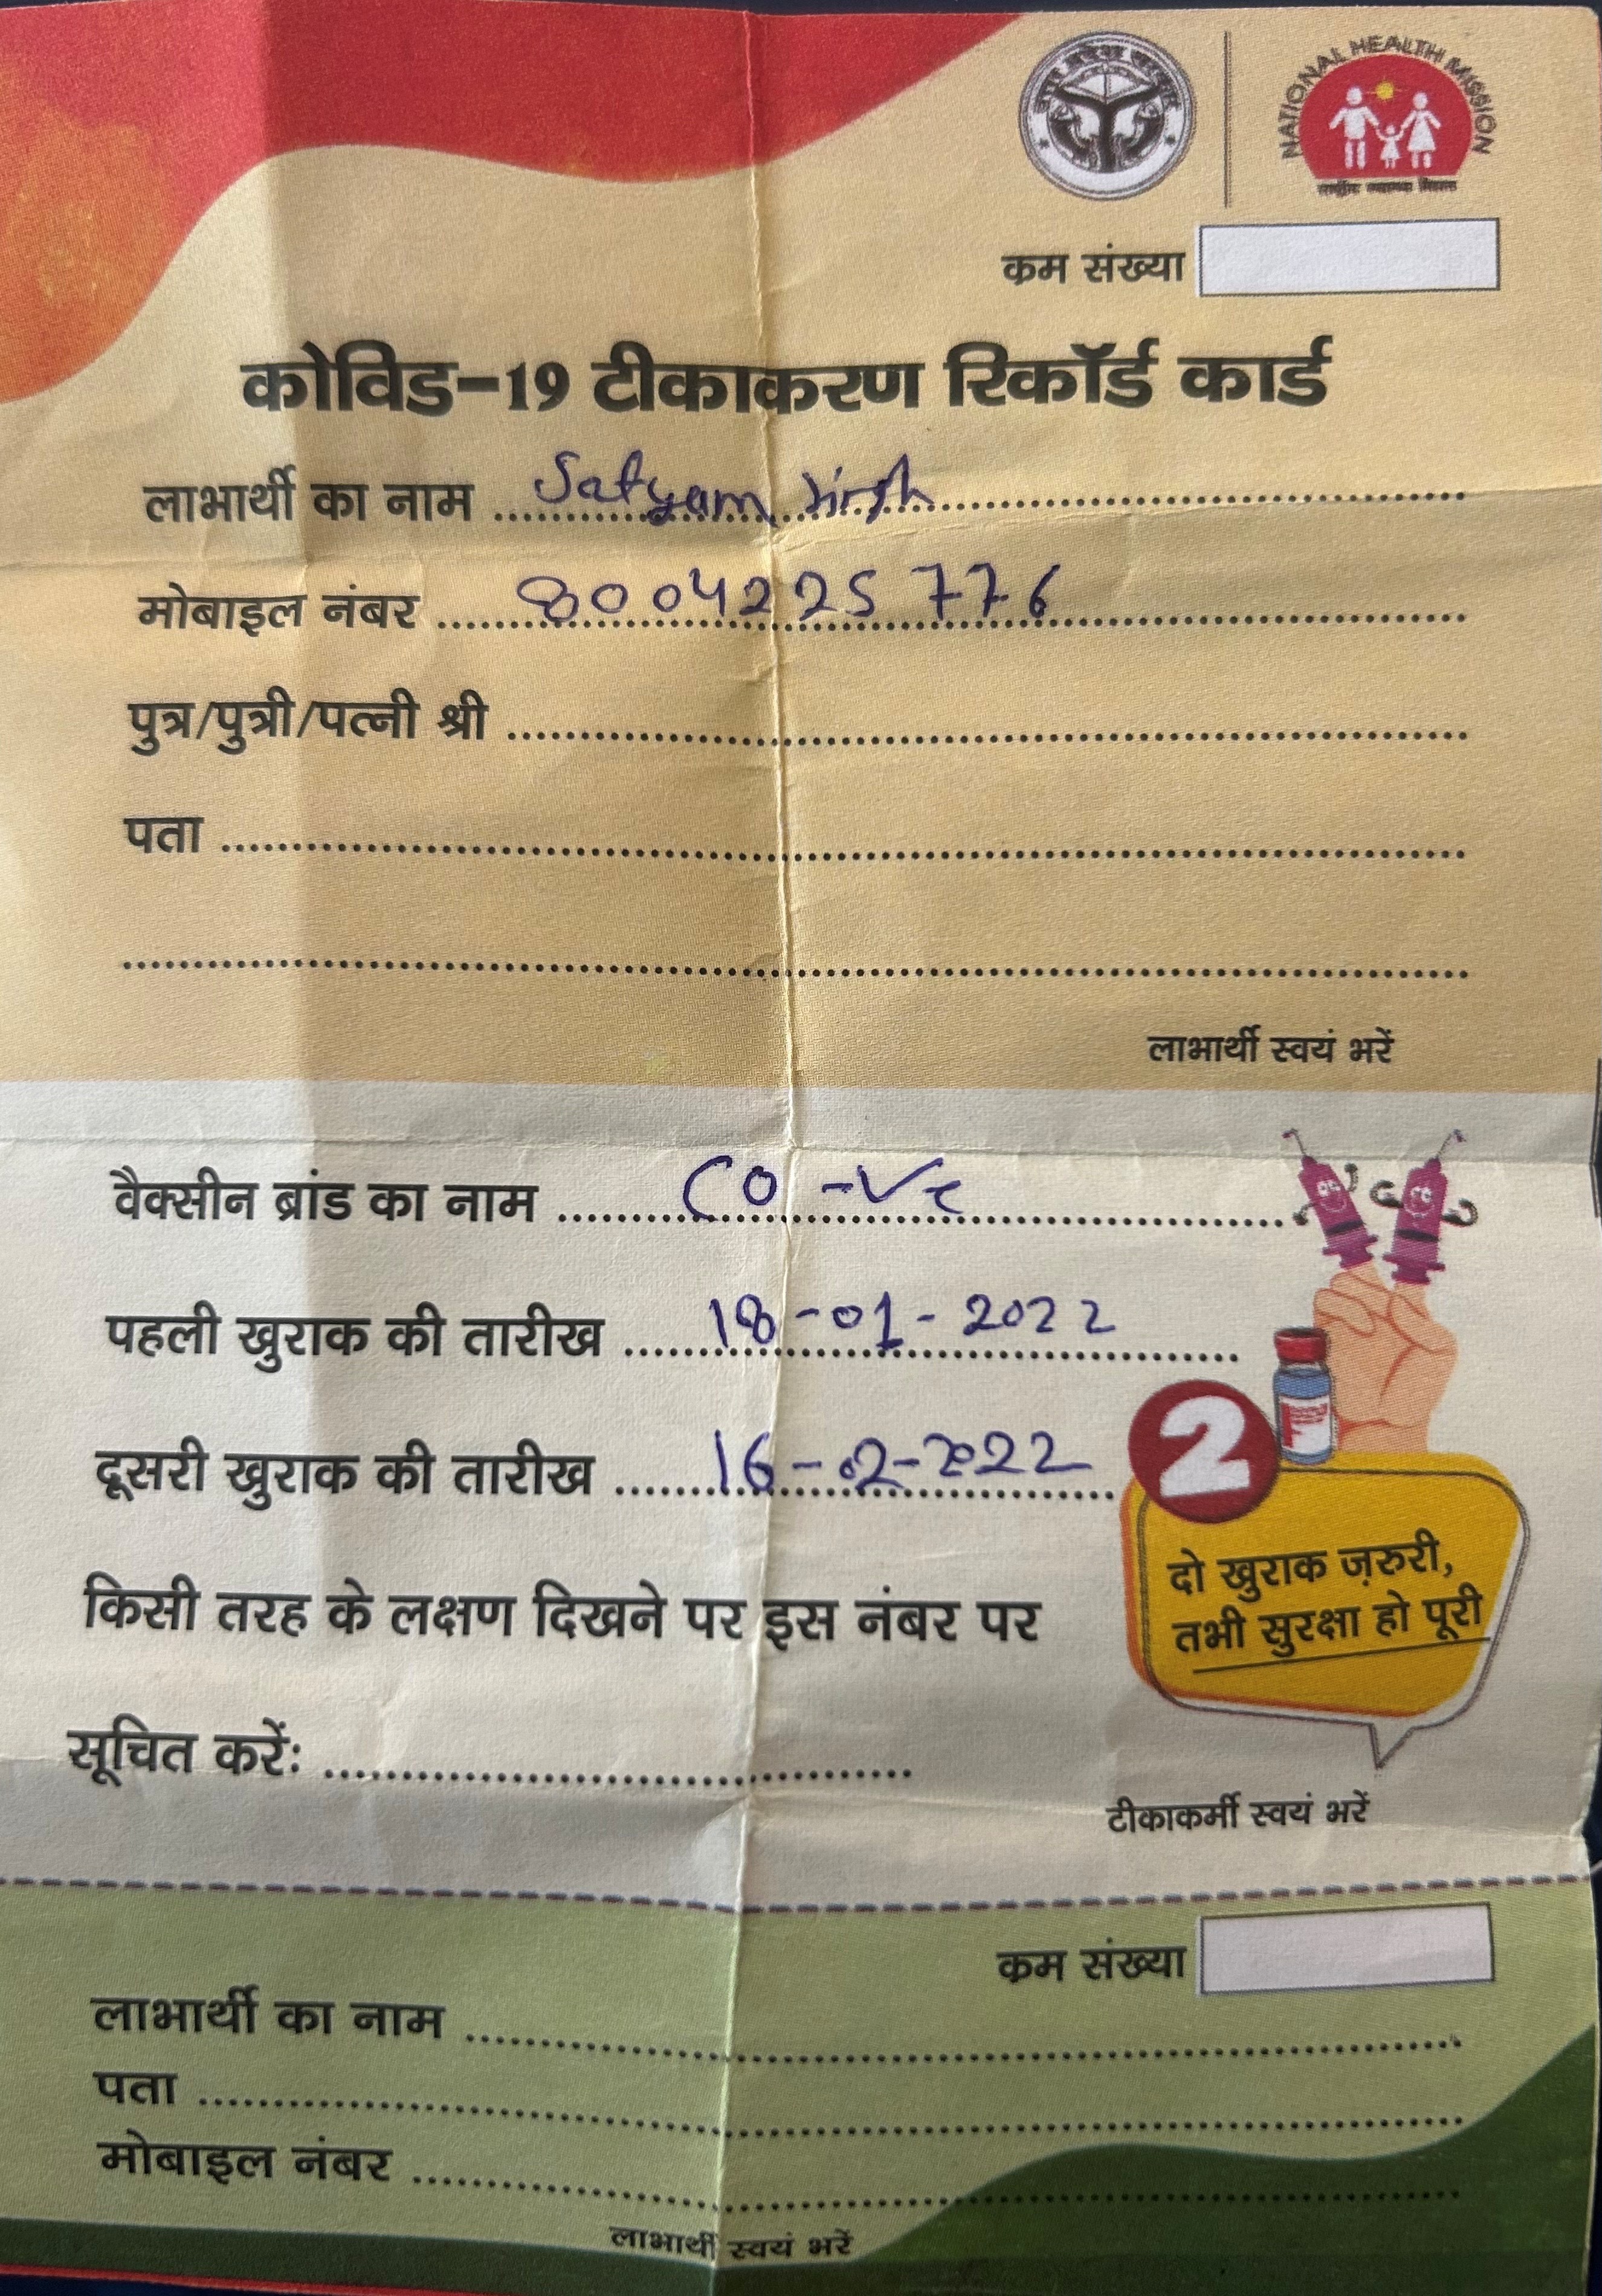 उत्तर प्रदेश सरकार
NATIONAL HEALTH MISSION
राष्ट्रीय स्वास्थ्य मिशन
क्रम संख्या
कोविड-19 टीकाकरण रिकॉर्ड कार्ड
लाभार्थी का नाम Satyam Singh
मोबाइल नंबर 8004225776
पुत्र/पुत्री/पत्नी श्री
पता
लाभार्थी स्वयं भरें
वैक्सीन ब्रांड का नाम CO-Ve
पहली खुराक की तारीख 18-01-2022
दूसरी खुराक की तारीख 16-02-2022
2
दो खुराक ज़रुरी,
तभी सुरक्षा हो पूरी
किसी तरह के लक्षण दिखने पर इस नंबर पर
सूचित करें:
टीकाकर्मी स्वयं भरें
क्रम संख्या
लाभार्थी का नाम
पता
मोबाइल नंबर
लाभार्थी स्वयं भरें